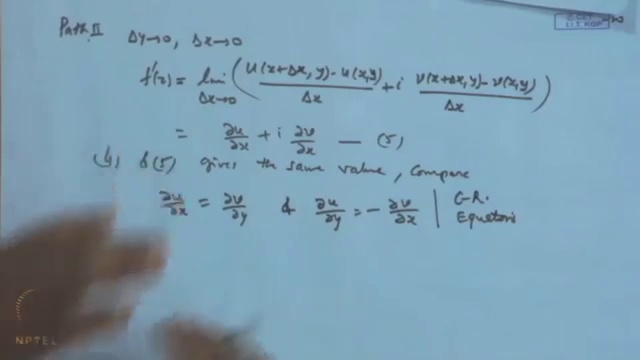 Path II
Δy→0, Δx→0
f'(z) = lim Δx→0 ( u(x+Δx, y) - u(x,y) / Δx + i v(x+Δx, y) - v(x,y) / Δx )
= ∂u/∂x + i ∂v/∂x — (5)
(4) & (5) gives the same value, Compare
∂u/∂x = ∂v/∂y & ∂u/∂y = - ∂v/∂x | C-R. Equations
© CET
I.I.T. KGP
NPTEL